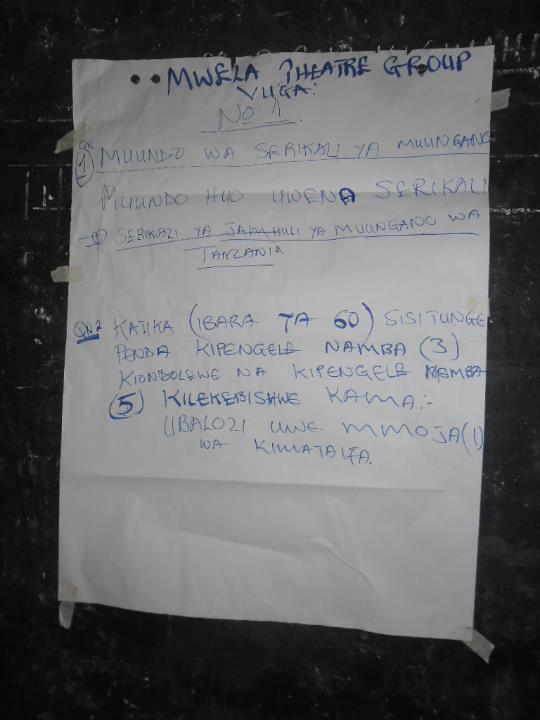 MWELA THEATRE GROUP
VUGA:
No 1.
QN
1 MUUNDO WA SERIKALI YA MUUNGANO
MUUNDO HUO UWENA SERIKALI
SERIKALI YA JAMHULI YA MUUNGANO WA
TANZANIA
QN2 KATIKA (IBARA YA 60) SISI TUNGE
PENDA KIPENGELE NAMBA (3)
KIONDOLEWE NA KIPENGELE NAMBA
(5) KILEKEBISHWE KAMA:-
UBALOZI UWE MMOJA(1)
WA KIMATAIFA.